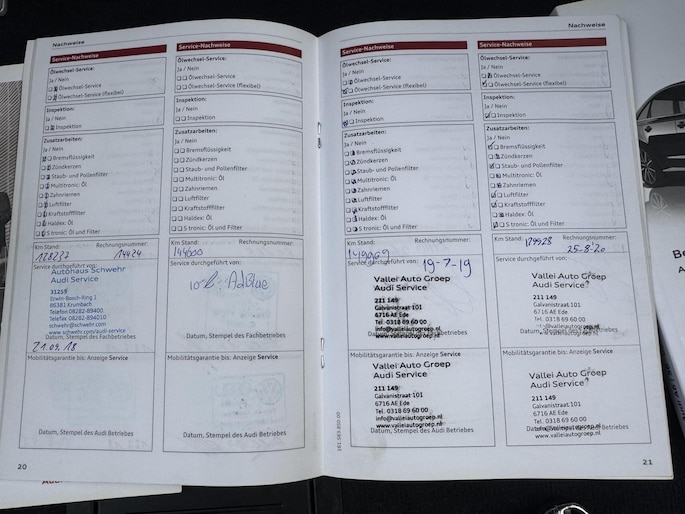 Nachweise
Service-Nachweise
Ölwechsel-Service:
Ja / Nein
Ölwechsel-Service
Ölwechsel-Service (flexibel)
Inspektion:
Ja / Nein
Inspektion
Zusatzarbeiten:
Ja / Nein
Bremsflüssigkeit
Zündkerzen
Staub- und Pollenfilter
Multitronic: Öl
Zahnriemen
Luftfilter
Kraftstofffilter
Haldex: Öl
S tronic: Öl und Filter
Km Stand: Rechnungsnummer:
Service durchgeführt von:
Autohaus Schwehr
Audi Service
31259
Erwin-Bosch-Ring 1
86381 Krumbach
Telefon 08282-89400
Telefax 08282-894010
schwehr@schwehr.com
www.schwehr.com/audi-service
Datum, Stempel des Fachbetriebes
21.09.18
Mobilitätsgarantie bis: Anzeige Service
Datum, Stempel des Audi Betriebes
20
Service-Nachweise
Ölwechsel-Service:
Ja / Nein
Ölwechsel-Service
Ölwechsel-Service (flexibel)
Inspektion:
Ja / Nein
Inspektion
Zusatzarbeiten:
Ja / Nein
Bremsflüssigkeit
Zündkerzen
Staub- und Pollenfilter
Multitronic: Öl
Zahnriemen
Luftfilter
Kraftstofffilter
Haldex: Öl
S tronic: Öl und Filter
Km Stand: Rechnungsnummer:
144600
Service durchgeführt von:
AdBlue
Datum, Stempel des Fachbetriebes
Mobilitätsgarantie bis: Anzeige Service
Datum, Stempel des Audi Betriebes
Nachweise
Service-Nachweise
Ölwechsel-Service:
Ja / Nein
Ölwechsel-Service
Ölwechsel-Service (flexibel)
Inspektion:
Ja / Nein
Inspektion
Zusatzarbeiten:
Ja / Nein
Bremsflüssigkeit
Zündkerzen
Staub- und Pollenfilter
Multitronic: Öl
Zahnriemen
Luftfilter
Kraftstofffilter
Haldex: Öl
S tronic: Öl und Filter
Km Stand: Rechnungsnummer:
149969
Service durchgeführt von: 19-7-19
Vallei Auto Groep
Audi Service
211 149
Galvanistraat 101
6716 AE Ede
Tel. 0318 69 60 00
info@valleiautogroep.nl
www.valleiautogroep.nl
Datum, Stempel des Fachbetriebes
Mobilitätsgarantie bis: Anzeige Service
Vallei Auto Groep
Audi Service
211 149
Galvanistraat 101
6716 AE Ede
Tel. 0318 69 60 00
info@valleiautogroep.nl
www.valleiautogroep.nl
Datum, Stempel des Audi Betriebes
Service-Nachweise
Ölwechsel-Service:
Ja / Nein
Ölwechsel-Service
Ölwechsel-Service (flexibel)
Inspektion:
Ja / Nein
Inspektion
Zusatzarbeiten:
Ja / Nein
Bremsflüssigkeit
Zündkerzen
Staub- und Pollenfilter
Multitronic: Öl
Zahnriemen
Luftfilter
Kraftstofffilter
Haldex: Öl
S tronic: Öl und Filter
Km Stand: Rechnungsnummer:
25-8-20
Service durchgeführt von:
Vallei Auto Groep
Audi Service
211 149
Galvanistraat 101
6716 AE Ede
Tel. 0318 69 60 00
info@valleiautogroep.nl
www.valleiautogroep.nl
Datum, Stempel des Fachbetriebes
Mobilitätsgarantie bis: Anzeige Service
Vallei Auto Groep
Audi Service
211 149
Galvanistraat 101
6716 AE Ede
Tel. 0318 69 60 00
info@valleiautogroep.nl
www.valleiautogroep.nl
Datum, Stempel des Audi Betriebes
21